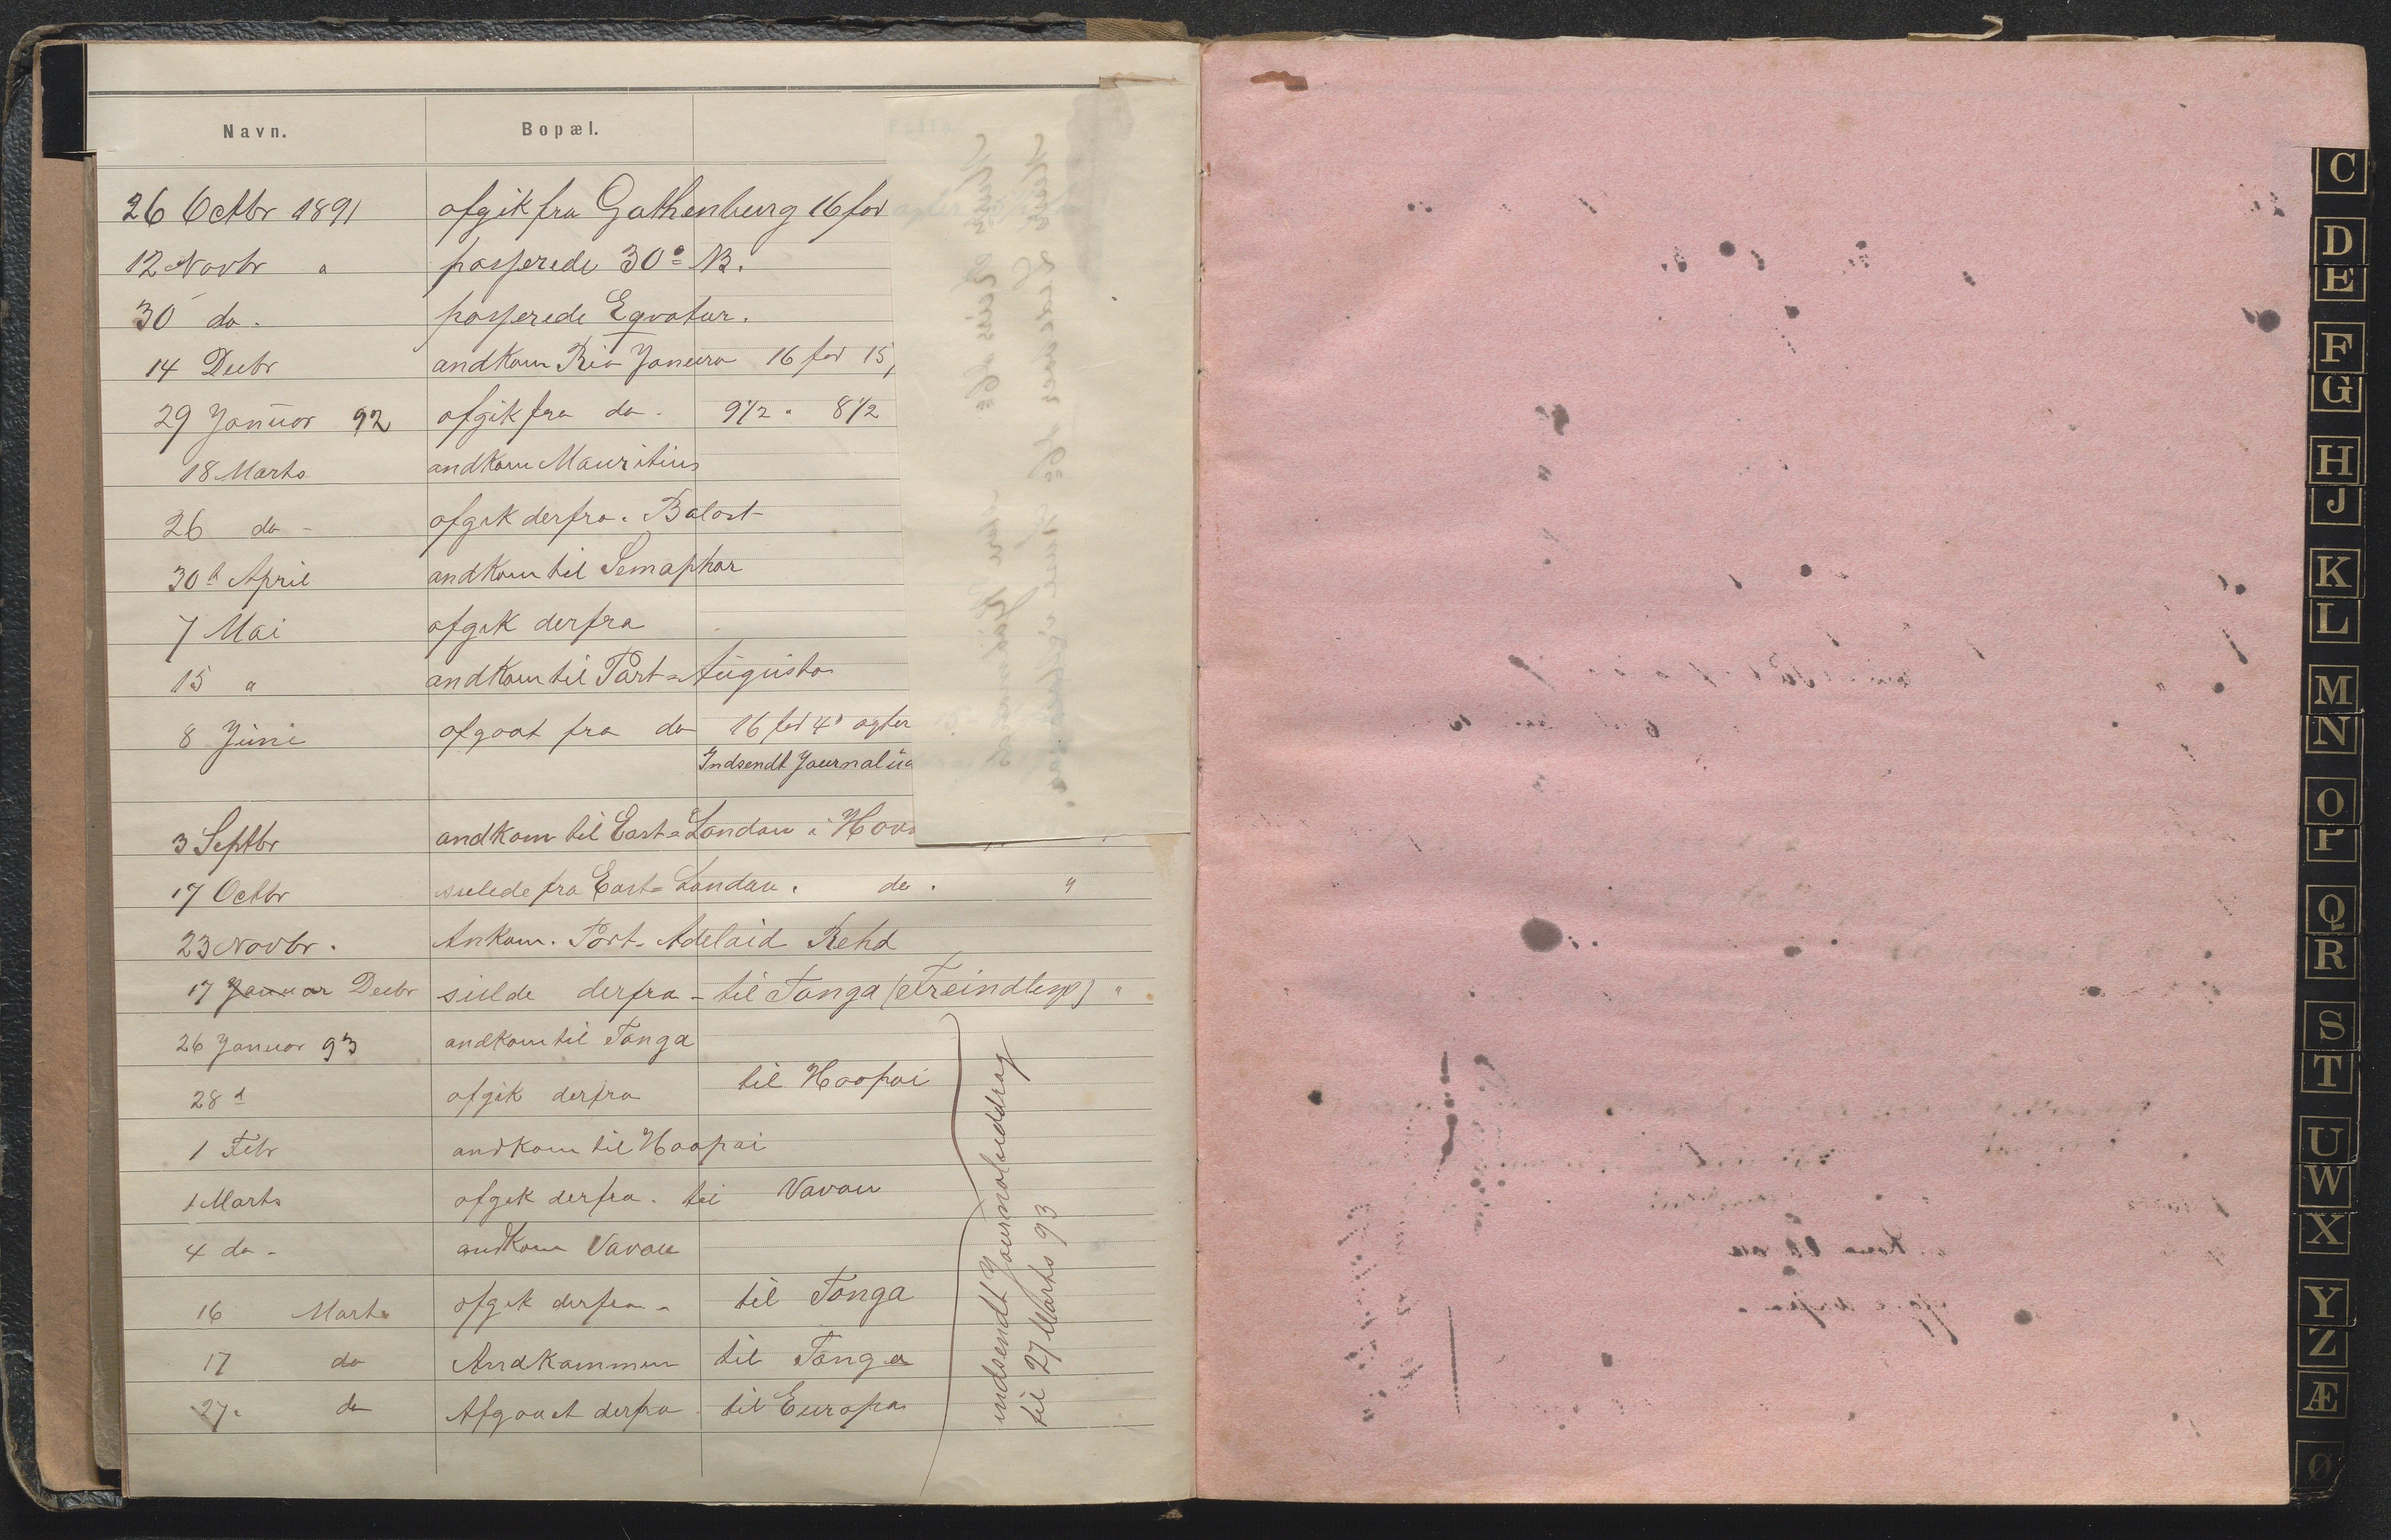 Navn. Bopæl.
26 Octbr 1891 afgik fra Gothenburg 16 for
12 Novbr " passerede 30° NB.
30 do. passerede Eqvator.
14 Decbr andkom Rio Janeiro 16 for 15,
29 Januar 92 afgik fra do. 9 1/2 " 8 1/2
18 Marts andkom Mauritius
26 do - afgik derfra. Balast
30t April andkom til Semaphor
7 Mai afgik derfra
15 " andkom til Port-Augusta
8 Juni afgaat fra do 16 fod 4" agter
Indsendt Journal
3 Septbr andkom til East-London i
17 Octbr seilede fra East-London. do. "
23 Novbr. Ankom. Port-Adelaid Rehd
17 Januar Decbr seilde derfra - til Tonga (Freindlys) "
26 Januar 93 andkom til Tonga
28 d afgik derfra til Haapai
1 Febr andkom til Haapai
1 Marts afgik derfra. til Vavau
4 do - andkom Vavau
16 Marts afgik derfra - til Tonga
17 do Andkommen til Tonga
27. do Afgaaet derfra til Europa
indsendt Journaluddrag
til 27 Marts 93
C
D
E
F
G
H
J
K
L
M
N
O
P
Q
R
S
T
U
W
X
Y
Z
Æ
Ø